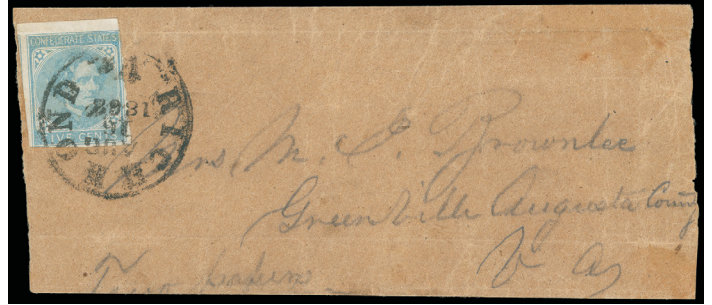 CONFEDERATE STATES
FIVE CENTS
RICHMOND VA.
AUG
1862
Mrs. M. S. Brownlee
GreenVille Augusta County
Va
Two